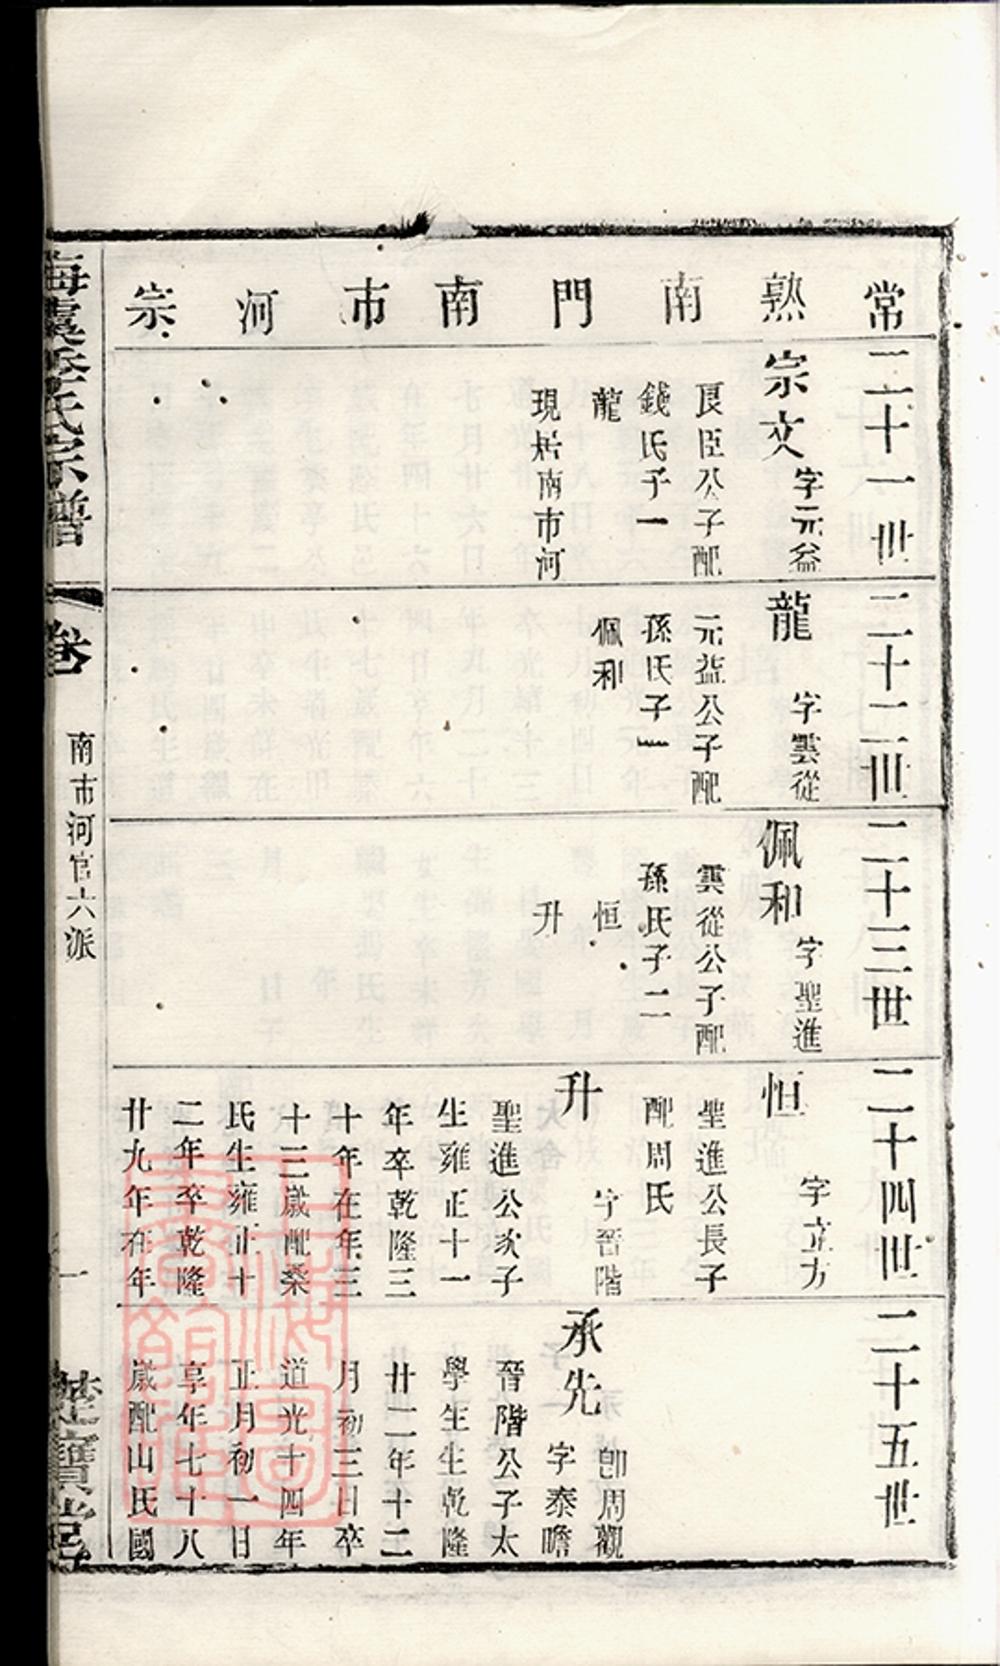 常熟南門南市河宗
二十一世
宗文
字元益
良臣公子配
錢氏子一
龍
現居南市河
二十二世
龍
字雲從
元益公子配
孫氏子一
佩和
二十三世
佩和
字聖進
雲從公子配
孫氏子二
恒
升
二十四世
恒
字立方
聖進公長子
配周氏
升
字晉階
聖進公次子
生雍正十一
年卒乾隆三
十年在年三
十三歲配桑
氏生雍正十
二年卒乾隆
廿九年在年
二十五世
承先
卽周觀
字泰瞻
晉階公子太
學生生乾隆
廿二年十二
月初三日卒
道光十四年
正月初一日
享年七十八
歲配山氏國
海虞季氏宗譜
卷
南市河官六派
一
楚寶堂